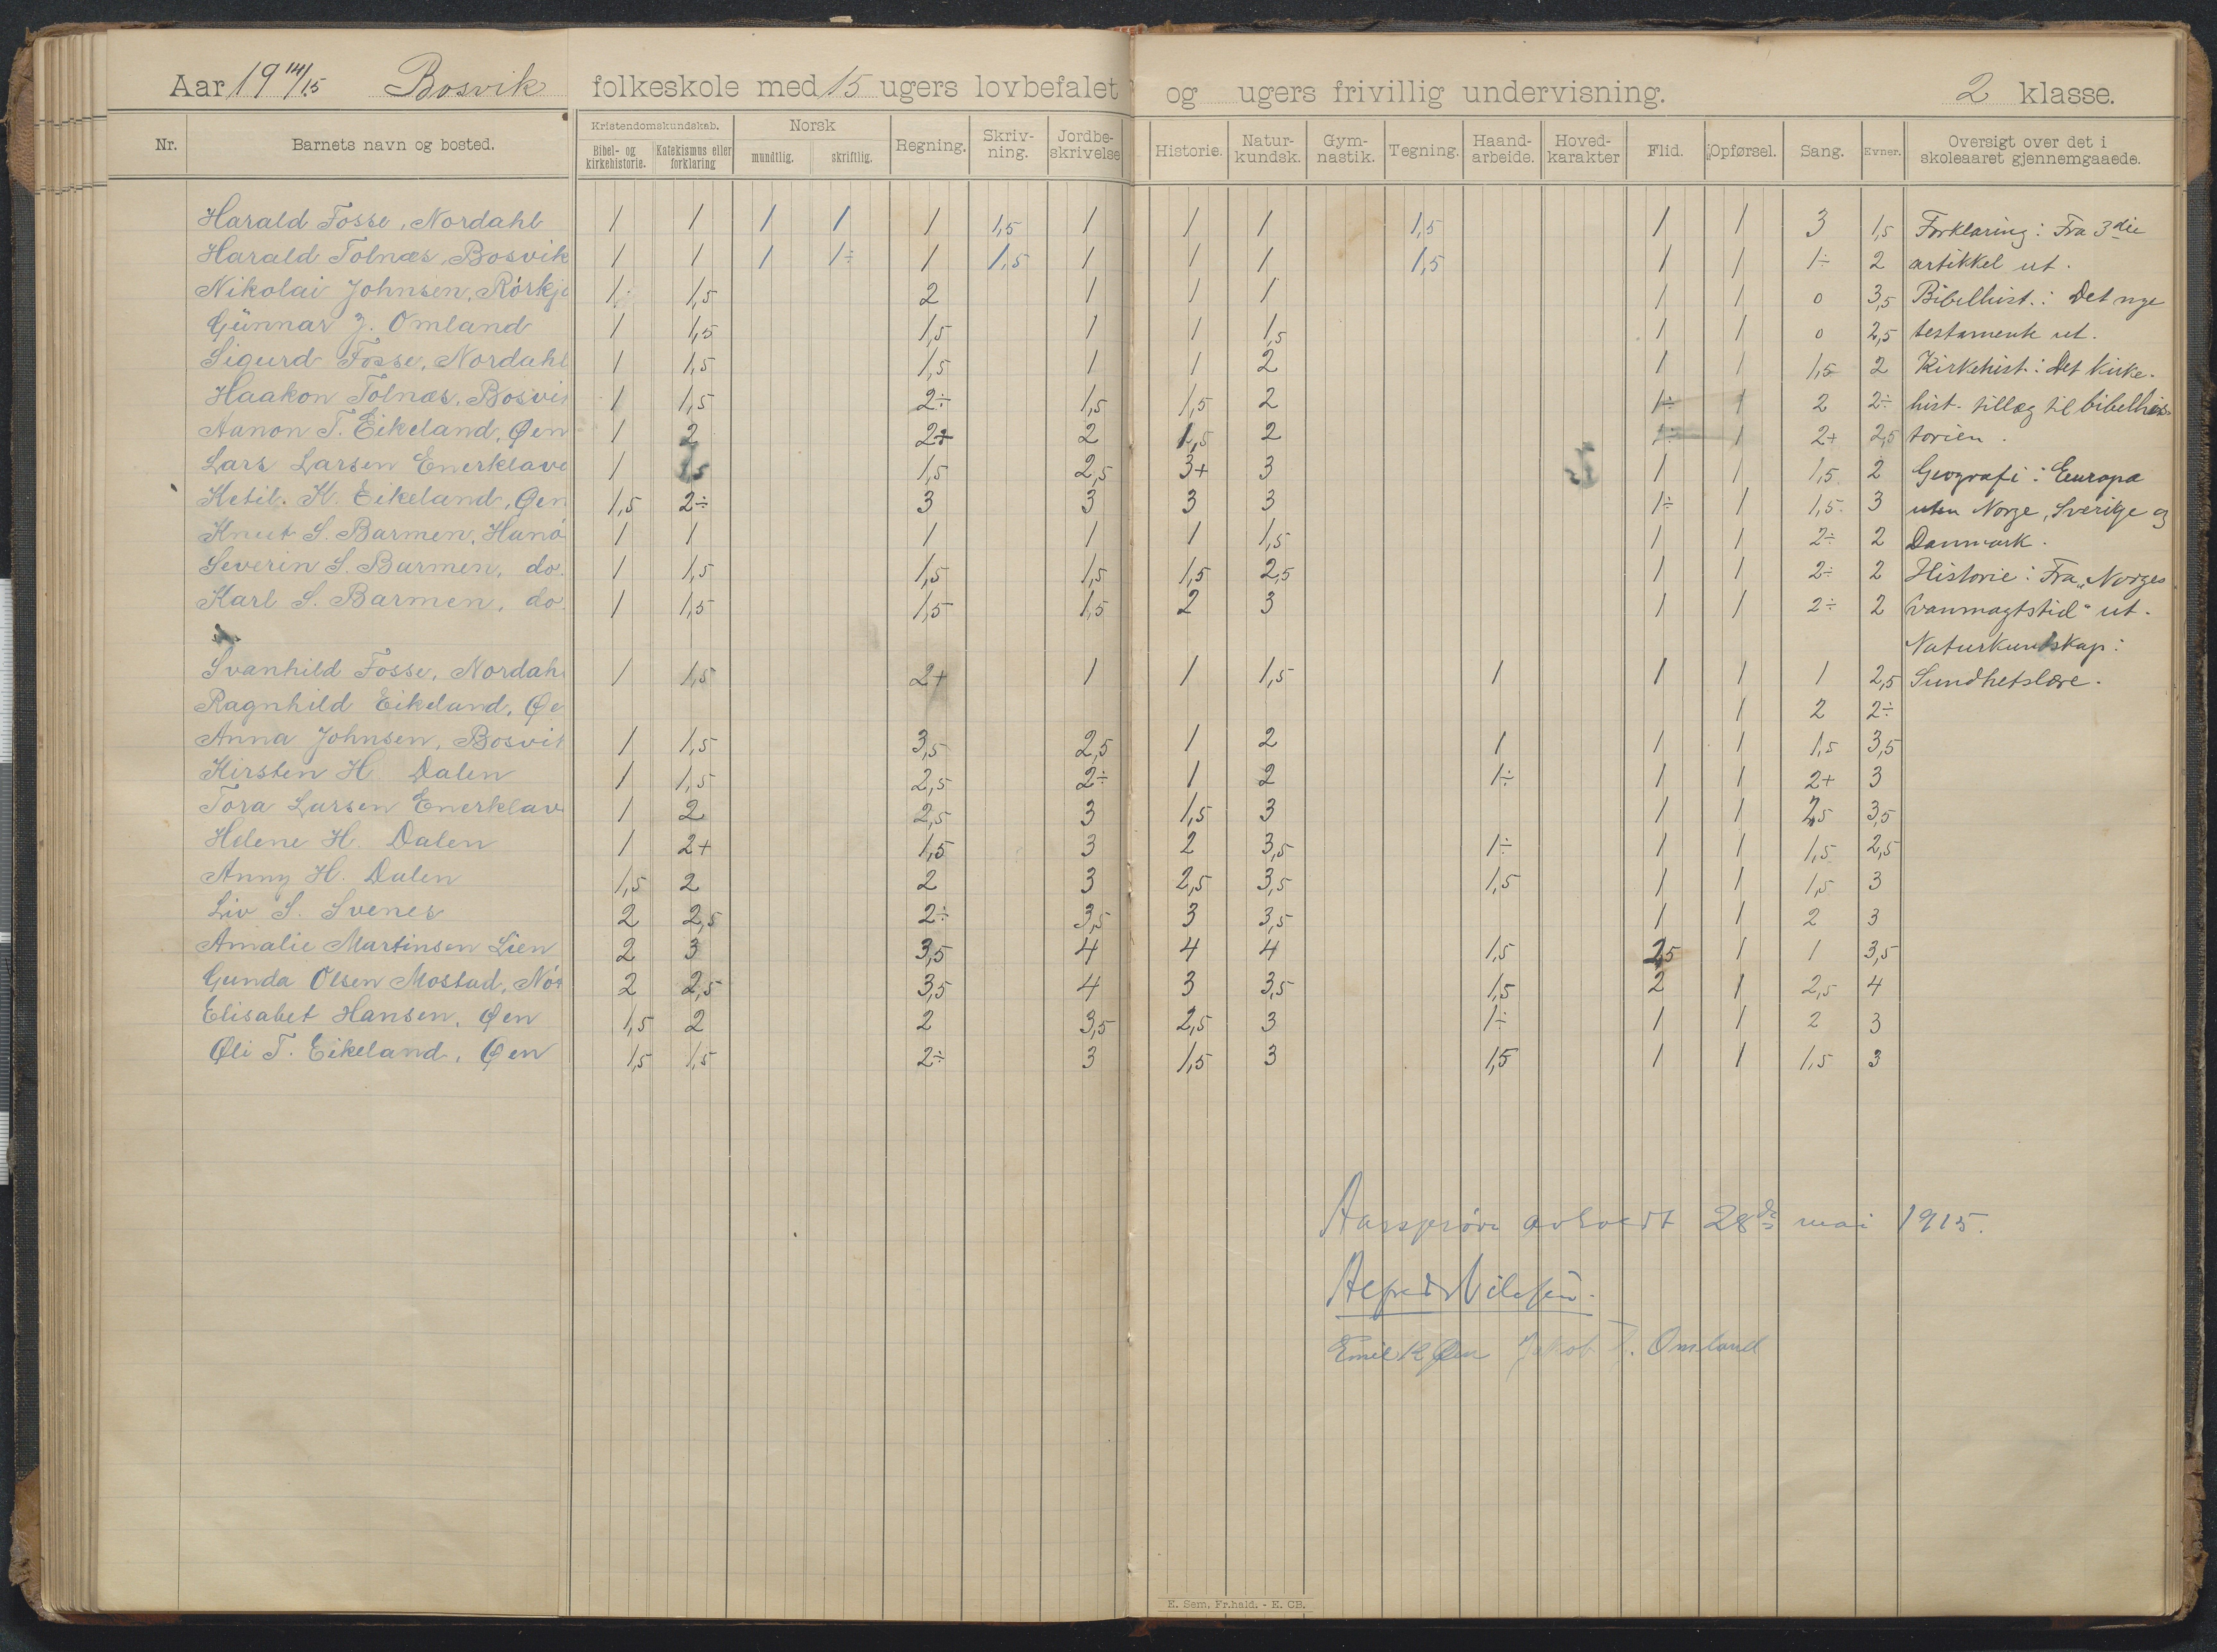 Aar 19 14/15 Bosvik folkeskole med 15 ugers lovbefalet og ugers frivillig undervisning. 2 klasse.
Nr. Barnets navn og bosted. Kristendomskundskab. Bibel- og kirkehistorie. Katekismus eller forklaring Norsk mundtlig. skriftlig. Regning. Skriv-ning. Jordbe-skrivelse Historie. Natur-kundsk. Gym-nastik. Tegning. Haand-arbeide. Hoved-karakter Flid. Opførsel. Sang. Evner. Oversigt over det i skoleaaret gjennemgaaede.
Harald Fosse, Nordahl 1 1 1 1 1 1,5 1 1 1 1,5 1 1 3 1,5 Forklaring: Fra 3die
Harald Tolnæs, Bosvik 1 1 1 1÷ 1 1,5 1 1 1 1,5 1 1 1÷ 2 artikkel ut.
Nikolai Johnsen, Rörkje 1÷ 1,5 2 1 1 1 1 1 0 3,5 Bibelhist.: Det nye
Günnar J. Omland 1 1,5 1,5 1 1 1,5 1 1 0 2,5 testamente ut.
Sigurd Fosse, Nordahl 1 1,5 1,5 1 1 2 1 1 1,5 2 Kirkehist.: Det kirke-
Haakon Tolnæs, Bosvik 1 1,5 2÷ 1,5 1,5 2 1÷ 1 2 2÷ hist. tillæg til bibelhis-
Aanon T. Eikeland, Øen 1 2 2+ 2 1,5 2 1÷ 1 2+ 2,5 torien.
Lars Larsen Enerklave 1 1,5 1,5 2,5 3+ 3 1 1 1,5 2 Geografi: Europa
Ketil. K. Eikeland, Øen 1,5 2÷ 3 3 3 3 1÷ 1 1,5 3 uten Norge, Sverige og
Knut S. Barmen, Hanö 1 1 1 1 1 1,5 1 1 2÷ 2 Danmark.
Severin S. Barmen, do. 1 1,5 1,5 1,5 1,5 2,5 1 1 2÷ 2 Historie: Fra „Norges
Karl S. Barmen, do. 1 1,5 1,5 1,5 2 3 1 1 2÷ 2 vanmagtstid" ut.
Naturkundskap:
Svanhild Fosse, Nordah 1 1,5 2+ 1 1 1,5 1 1 1 1 2,5 Sundhetslære.
Ragnhild Eikeland, Øe 1 2 2÷
Anna Johnsen, Bosvik 1 1,5 3,5 2,5 1 2 1 1 1 1,5 3,5
Kirsten H. Dalen 1 1,5 2,5 2÷ 1 2 1÷ 1 1 2+ 3
Tora Larsen Enerklav 1 2 2,5 3 1,5 3 1 1 2,5 3,5
Helene H. Dalen 1 2+ 1,5 3 2 3,5 1÷ 1 1 1,5 2,5
Anny H. Dalen 1,5 2 2 3 2,5 3,5 1,5 1 1 1,5 3
Liv S. Svenes 2 2,5 2÷ 3,5 3 3,5 1 1 2 3
Amalie Martinsen Lien 2 3 3,5 4 4 4 1,5 2,5 1 1 3,5
Gunda Olsen Mostad, Nör 2 2,5 3,5 4 3 3,5 1,5 2 1 2,5 4
Elisabet Hansen, Øen 1,5 2 2 3,5 2,5 3 1÷ 1 1 2 3
Øli T. Eikeland, Øen 1,5 1,5 2÷ 3 1,5 3 1,5 1 1 1,5 3
Aarsprøve avholdt 28de mai 1915.
Alfred Nilssen.
Emil K Øen Jakob J. Omland
E. Sem, Fr.hald. - E. CB.